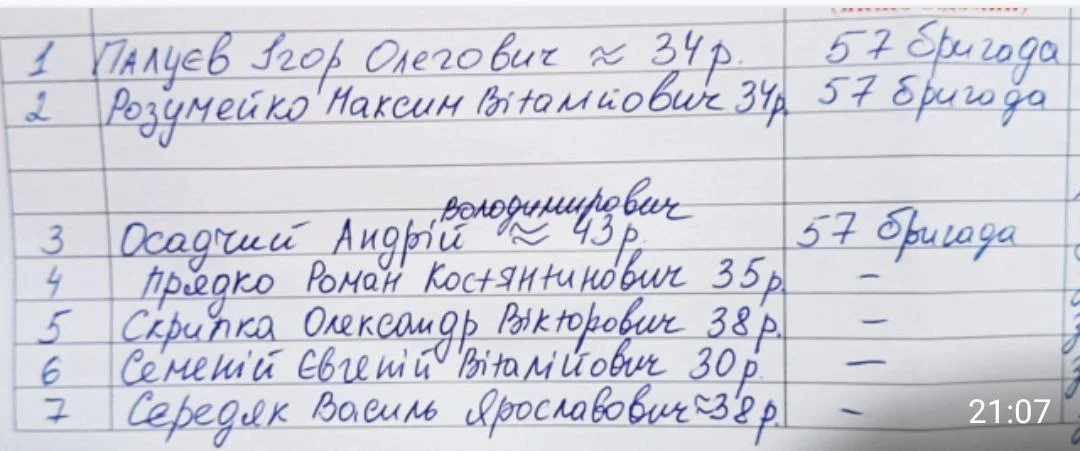 1 Палуєв Ігор Олегович ≈ 34р. 57 бригада
2 Розумейко Максим Віталійович 34р. 57 бригада
Володимирович
3 Осадчий Андрій ≈ 43р. 57 бригада
4 Прядко Роман Костянтинович 35р. –
5 Скрипка Олександр Вікторович 38р. –
6 Семеній Євгеній Віталійович 30р. –
7 Середяк Василь Ярославович ≈38р. –
21:07